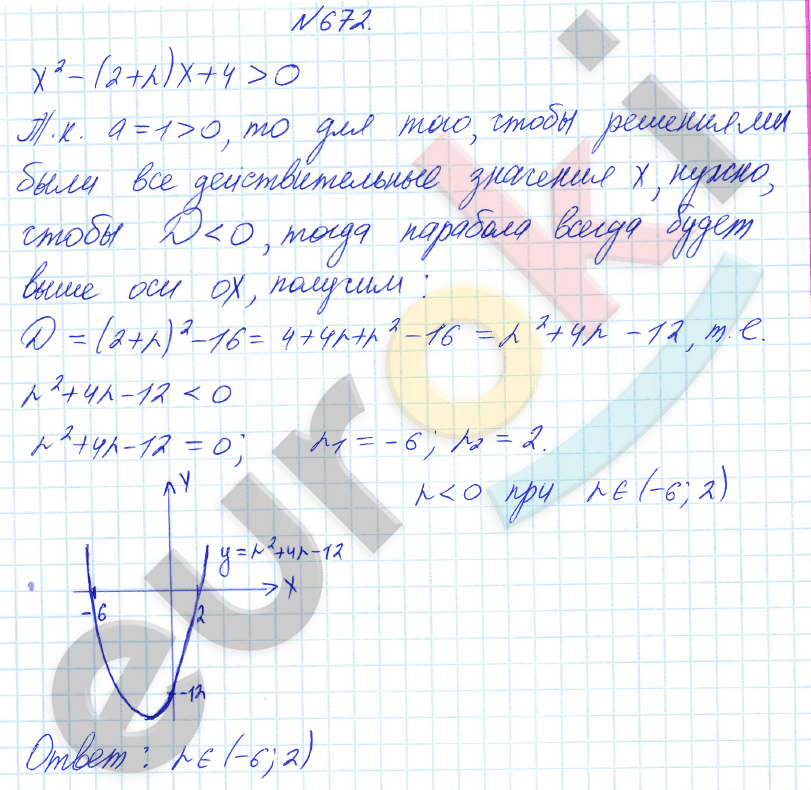 №672.
x² - (2+r)x + 4 > 0
Т.к. a = 1 > 0, то для того, чтобы решениями
были все действительные значения x, нужно,
чтобы D < 0, тогда парабола всегда будет
выше оси ox, получим:
D = (2+r)² - 16 = 4 + 4r + r² - 16 = r² + 4r - 12, т.е.
r² + 4r - 12 < 0
r² + 4r - 12 = 0; r₁ = -6; r₂ = 2.
r < 0 при r ∈ (-6; 2)
y
y = r² + 4r - 12
x
-6 2
-12
Ответ: r ∈ (-6; 2)
euroki